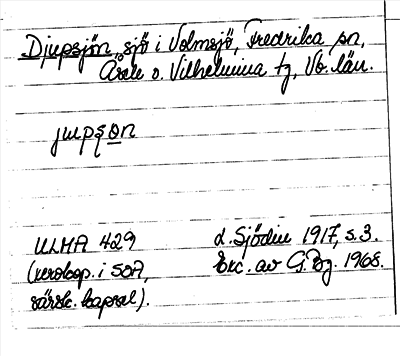 Djupsjön, sjö i Volmsjö, Fredrika sn,
Åsele o. Vilhelmina tg, Vb. län.
jupşo̲n
ULMA 429
(xeroxop. i SOA,
särsk. kapsel).
d. Sjödin 1917, s. 3.
Exc. av G.Bg. 1968.